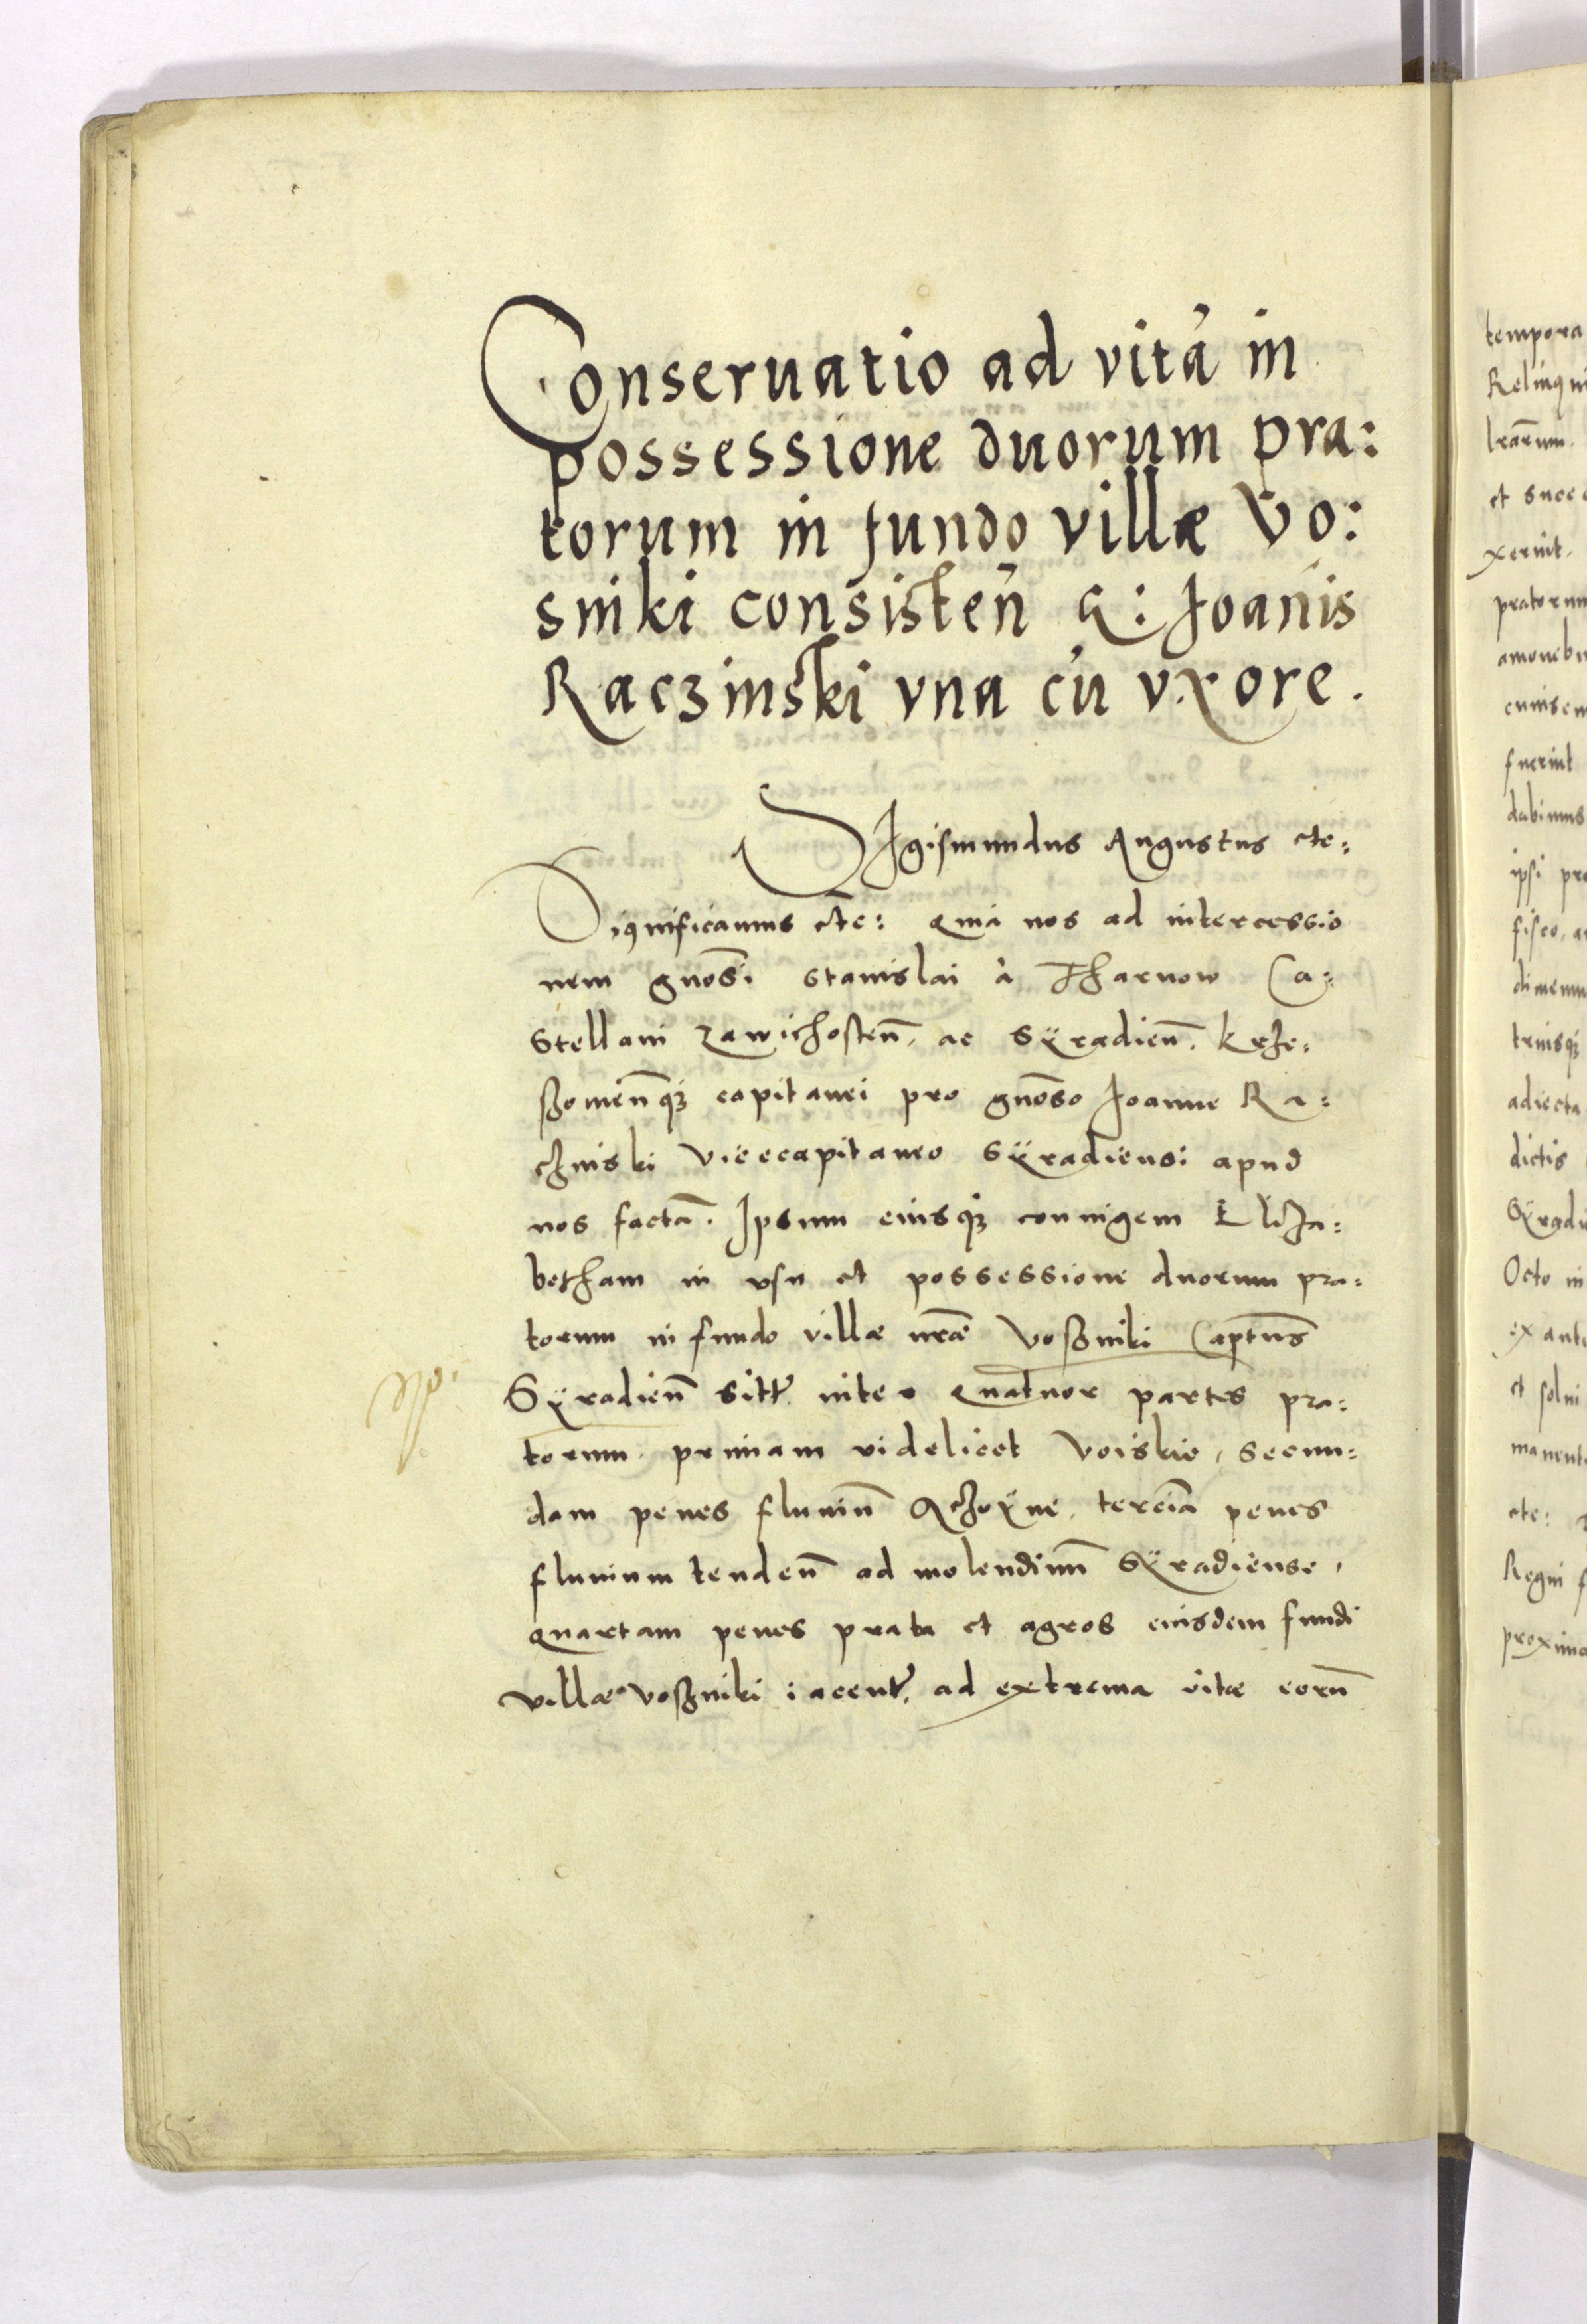 Conseruatio ad vitã in
possessione duorum pra:
torum in fundo villæ Vo:
sniki consisteñ G: Joãnis
Raczinski vna cũ vxore.
Sigismundus Augustus etc:
Significamus etc: quia nos ad intercessio
nem gnosi Stanislai à Tharnow Ca:
stellani Zawichosteñ, ac Syradieñ. krze:
ßomieñqꝫ capitanei pro gnoso Joanne Ra:
czinski Vicecapitaneo Syradiensi apud
nos factã. Ipsum eiusqꝫ coniugem Eliza:
betham in vsu et possessione duorum pra:
torum in fundo villæ nræ Voßniki Captus
Syradieñ sitt. inter quatuor partes pra:
torum. primam videlicet Voiskie, secun:
dam penes fluuiũ terciã penes
fluuium tendeñ ad molendinũ Syradiense,
quartam penes prata et agros eiusdem fundi
villæ Voßniki iacent. ad extrema vitæ eorũ
tempora
et succe
xerint.
pratorum
fuerint
dabimus
ipsi pro
fisco, a
adiecta
dictis
Syradi
Octo in
ex ant
et solui
etc:
Regni
proxima